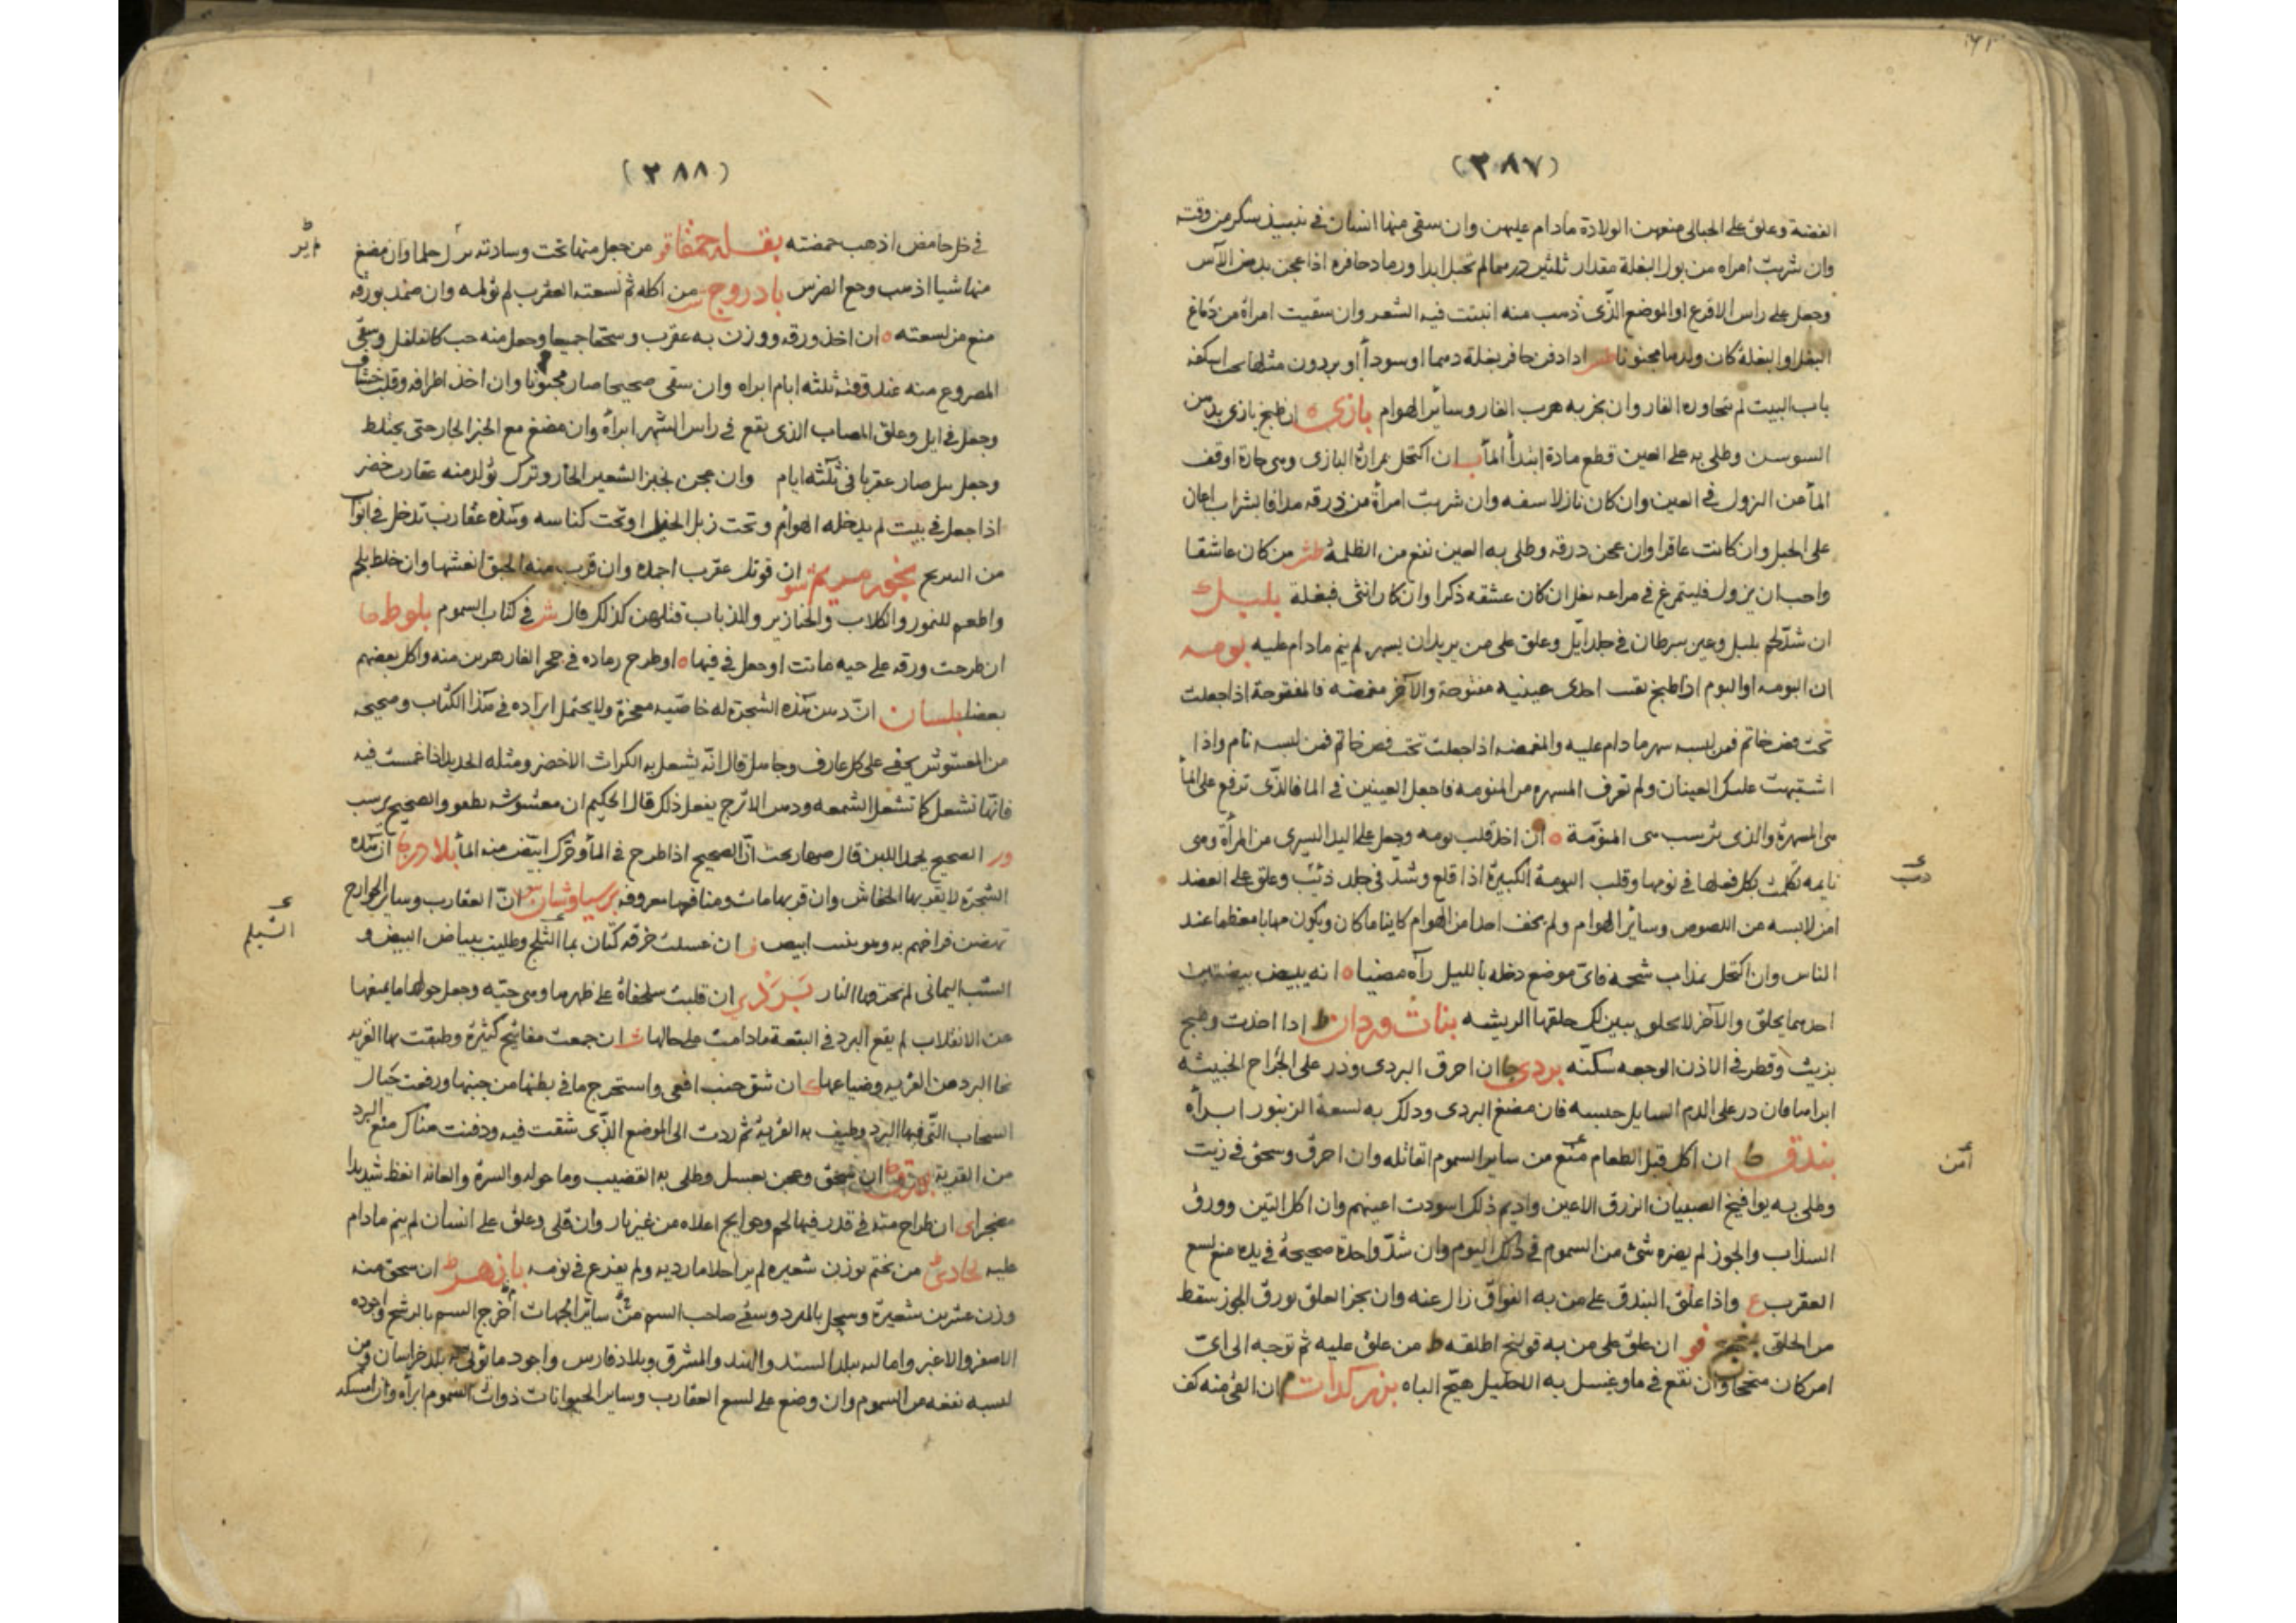 (٣٨٧)
الفضة وعلق على الحبالى منعهن الولادة مادام عليهن وان سقى منها انسان في نبيذ سكر من وقته
وان شربت امراه من بول البغلة مقدار ثلثين درهما لم تحبل ابدا ورماد حافره اذا عجن بدهن الآس
وجعل على راس الاقرع او الموضع الذى ذهب منه انبتت فيه الشعر وان سقيت امراة من دماغ
البغل او البغلة كان ولدها مجنونا اذا دفن حافر بغلة دهما او سودأ او بردون مثلها اسكفة
باب البيت لم تجاوره الفار وان بخر به هرب الفار وسائر الهوام بازى ان طبخ بازى بدهن
السوسن وطلى به على العين قطع مادة ابتدأ المأ ان اكتحل بمرارة البازى وهى حارة اوقف
المأ من النزول في العين وان كان نازلا وان شربت امرأة من زرقه مدافا بشراب اعان
على الحبل وان كانت عاقرا وان عجن ذرقه وطلى به العين نفع من الظلمة من كان عاشقا
واحب ان يزول فليتمرغ في مراغه بغل ان كان عشقه ذكرا وان كان انثى فبغلة بلبل
ان شدّ لحم بلبل وعين سرطان في جلد ايّل وعلق على من يريد ان يسهر لم ينم مادام عليه بومه
ان البومه او البوم اذا طبخ احدى عينيه مفتوحة والآخر مغمضه فالمفتوحة اذا جعلت
تحت فص خاتم فمن لبسه سهر مادام عليه والمغمضه اذا جعلت تحت فص خاتم فمن لبسه نام واذا
اشتبهت عليك العينان ولم تعرف المسهره من المنومه فاجعل العينين في الما فالذى ترفع على المأ
هى المسهرة والذى ترسب هى المنوّمة ان اخذ قلب بومه وجعل على اليد اليسرى من المرأة وهى
نايمه تكلمت بكل فعلها في نومها وقلب البومة الكبيرة اذا قلع وشدّ في جلد ذئب وعلق على العضد
دب
امن لابسه من اللصوص وسائر الهوام ولم يخف احدا من الهوام كاينا ما كان ويكون مهابا معظما عند
الناس وان اكتحل بمذاب شحمه فاىّ موضع دخله بالليل رآه مضيا انه يبيض بيضتين
احدهما يحلق والآخر لا يحلق حلقها الريشه بنات وردان اذا اخذت وطبخ
بزيت وقطر في الاذن الوجعه سكنه بردى ان احرق البردى وذر على الجراح الخبيثه
ابراها فان ذر على الدم السايل حبسه فان مضغ البردى ودلك به لسعة الزنبور ابرأه
بندق ان اكل قبل الطعام منع من ساير السموم القاتله وان احرق وسحق في زيت
أمن
وطلى به يوافيخ الصبيان الزرق الاعين واديم ذلك اسودت اعينهم وان اكل التين وورق
السذاب والجوز لم يضره شئ من السموم في ذلك اليوم وان شدّ واحدة صحيحة في يده منع لسع
العقرب واذا علق البندق على من به الفواق زال عنه وان بخر العلق بورق الجوز سقط
من الحلق ان علق على من به قولنج اطلقه من علق عليه ثم توجه الى اىّ
امر كان منجحا وان نقع في ما وغسل به الاحليل هيّج الباه بزر كرات ان القى منه كف
(٣٨٨)
في خل حامض اذهب حمضته بقله حمقا من جعل منها تحت وسادته لم حلما وان مضغ
منها شيا اذهب وجع الضرس بادروج من اكله ثم لسعته العقرب لم تؤلمه وان ضمد بورقه
منع من لسعته ان اخذ ورقه ووزن به عقرب وسحقا جميعا وجعل منه حب كالفلفل وسقى
المصروع منه عند وقته ثلثه ايام ابراه وان سقى صحيحا صار مجنونا وان اخذ اطرافه وقلب خشاف
وجعل في ايل وعلق المصاب الذى يقع في راس الشهر ابرأه وان مضغ مع الخبز الحار حتى يختلط
وجعل صار عقربا في ثلثه ايام وان عجن بخبز الشعير الحار وترك تولد منه عقارب خضر
اذا جعل في بيت لم يدخله الهوام وتحت زبل الخيل او تحت كناسه وهذه عقارب تدخل في ابواب
من بخور مريم ان فوتك عقرب اجمده وان قرب منه الحبق انعشها وان خلط بلحم
واطعم للنمور والكلاب والخنازير والذباب قتلهن كذلك قال في كتاب السموم بلوط
ان طرحت ورقه على حيه ماتت او جعل في فيها او طرح رماده في جحر الفار هربن منه واكل بعضهم
بعضا بلسان انّ دهن هذه الشجرة له خاصّيه معجزة ولا يحتمل ايراده في هذا الكتاب وصحيحه
من المغشوش يخفى على كل عارف وجاهل قال انّه يشعل به الكراث الاخضر ومثله الحديد اذا غمست فيه
فانها تشعل كما تشعل الشمعه ودهن الاترج يفعل ذلك قال الحكيم ان مغشوشه يطفو والصحيح يرسب
الصحيح يجمد اللبن قال انّ الصحيح اذا طرح في المأ وحرّك ابيّض منه المأ انّ هذه
الشجرة لا يقربها الخفاش وان قربها مات ومنافعها معروفه برسياوشان انّ العقارب وساير الجوارح
الثيلم
فراخهم به وهو بنت ابيض ان غسلت خرقه كتان بما الثلج وطليت ببياض البيض و
الشب اليمانى لم تحرقها النار بَرَدْ ان قلبت سلحفاة على ظهرها وهى حيّه وجعل حولها ما يمنعها
من الانقلاب لم يقع البرد في البقعة مادامت على حالها ان جمعت مفاتيح كثيرة وطيفت بها القريه
نحا البرد من القريه وضياعها ان شق جنب افعى واستخرج ما في بطنها من جنبها ورفعت حيال
السحاب التى فيها البرد وطيف به القريه ثم ردت الى الموضع الذى شقت فيه ودفنت هناك منع البرد
من القرية بورق ان سحق وعجن بعسل وطلى به القضيب وما حوله والسرة والعانه انعظ شديدا
ان طرح منه في قدر فيها لحم وهو اعلاه من غير نار وان قلى وعلق على انسان لم ينم مادام
عليه بجادى من تختم بوزن شعيره لم ير احلاما رديه ولم يفزع في نومه بازهر ان سحق منه
وزن عشرين شعيرة وسحل بالمبرد وسقى صاحب السم من سائر الجهات اخرج السم بالرشح واجوده
الاصفر والاغبر واماليه ببلد السند والهند والمشرق وبلاد فارس واجود ما تولى به بلد خراسان ومن
لبسه نفعه من السموم وان وضع على لسع العقارب وساير الحيوانات ذوات السموم ابرأه وان امسكه